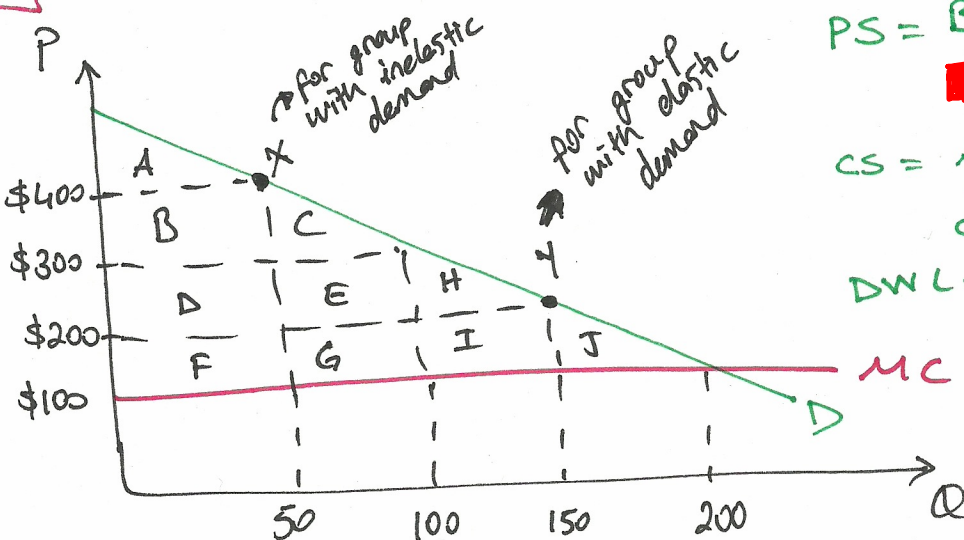 P
for group
with inelastic
demand
X
for group
with elastic
demand
Y
PS = B
CS =
DWL
A
$400
B
C
$300
D
E
H
$200
F
G
I
J
MC
$100
D
50
100
150
200
Q